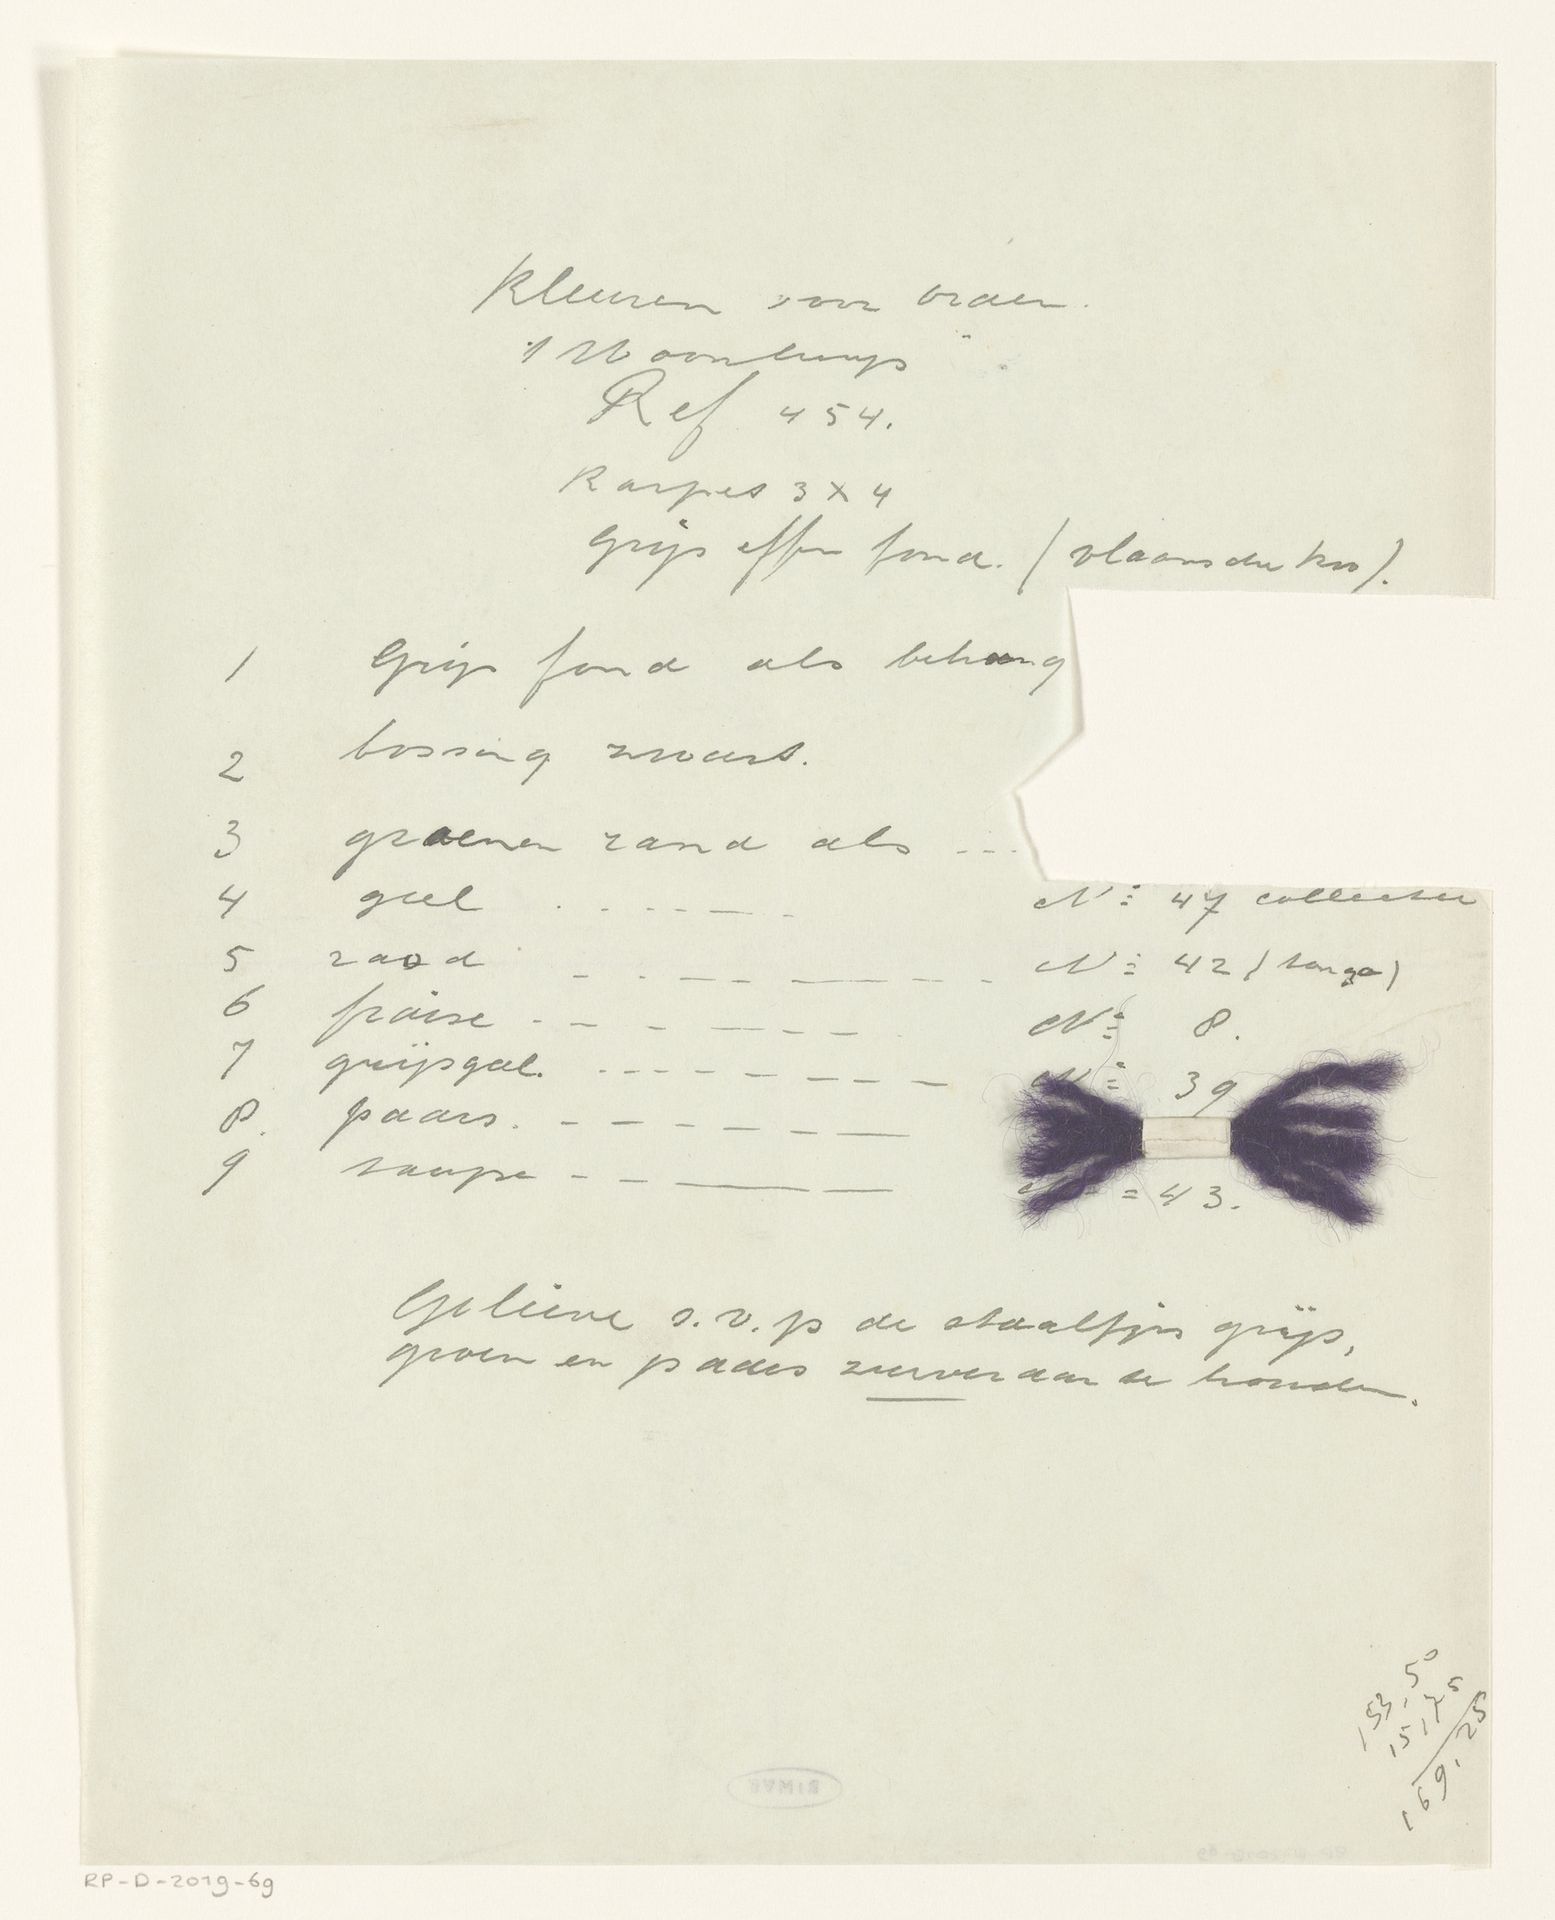 Kleuren voor order.
"'t Woonhuys".
Ref 454.
Karpet 3 x 4
Grijs effen fond. (vlaamsche
1 Grijs fond als behang
2 bossing zwart.
3 groenen rand als ---
4 geel . . . - - - - No 47 collectie
5 rood - - - - - - - - No 42 (tango)
6 fraise - - - - - - - No 8.
7 grijsgeel. - - - - - - - - No 39
8. paars. - - - - - - -
9 taupe - - - - = 43.
Gelieve s.v.p de staaltjes grijs,
groen en paars te houden.
153,50
15,75
169,25
SIMAR
RP-D-2019-69